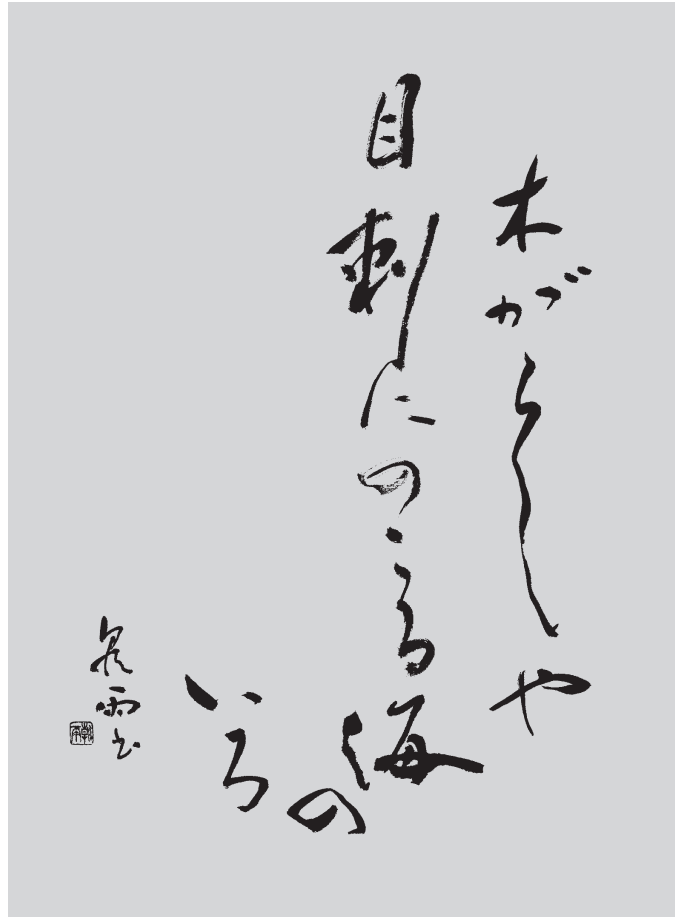 木がらしや
目刺にのこる海の
いろ